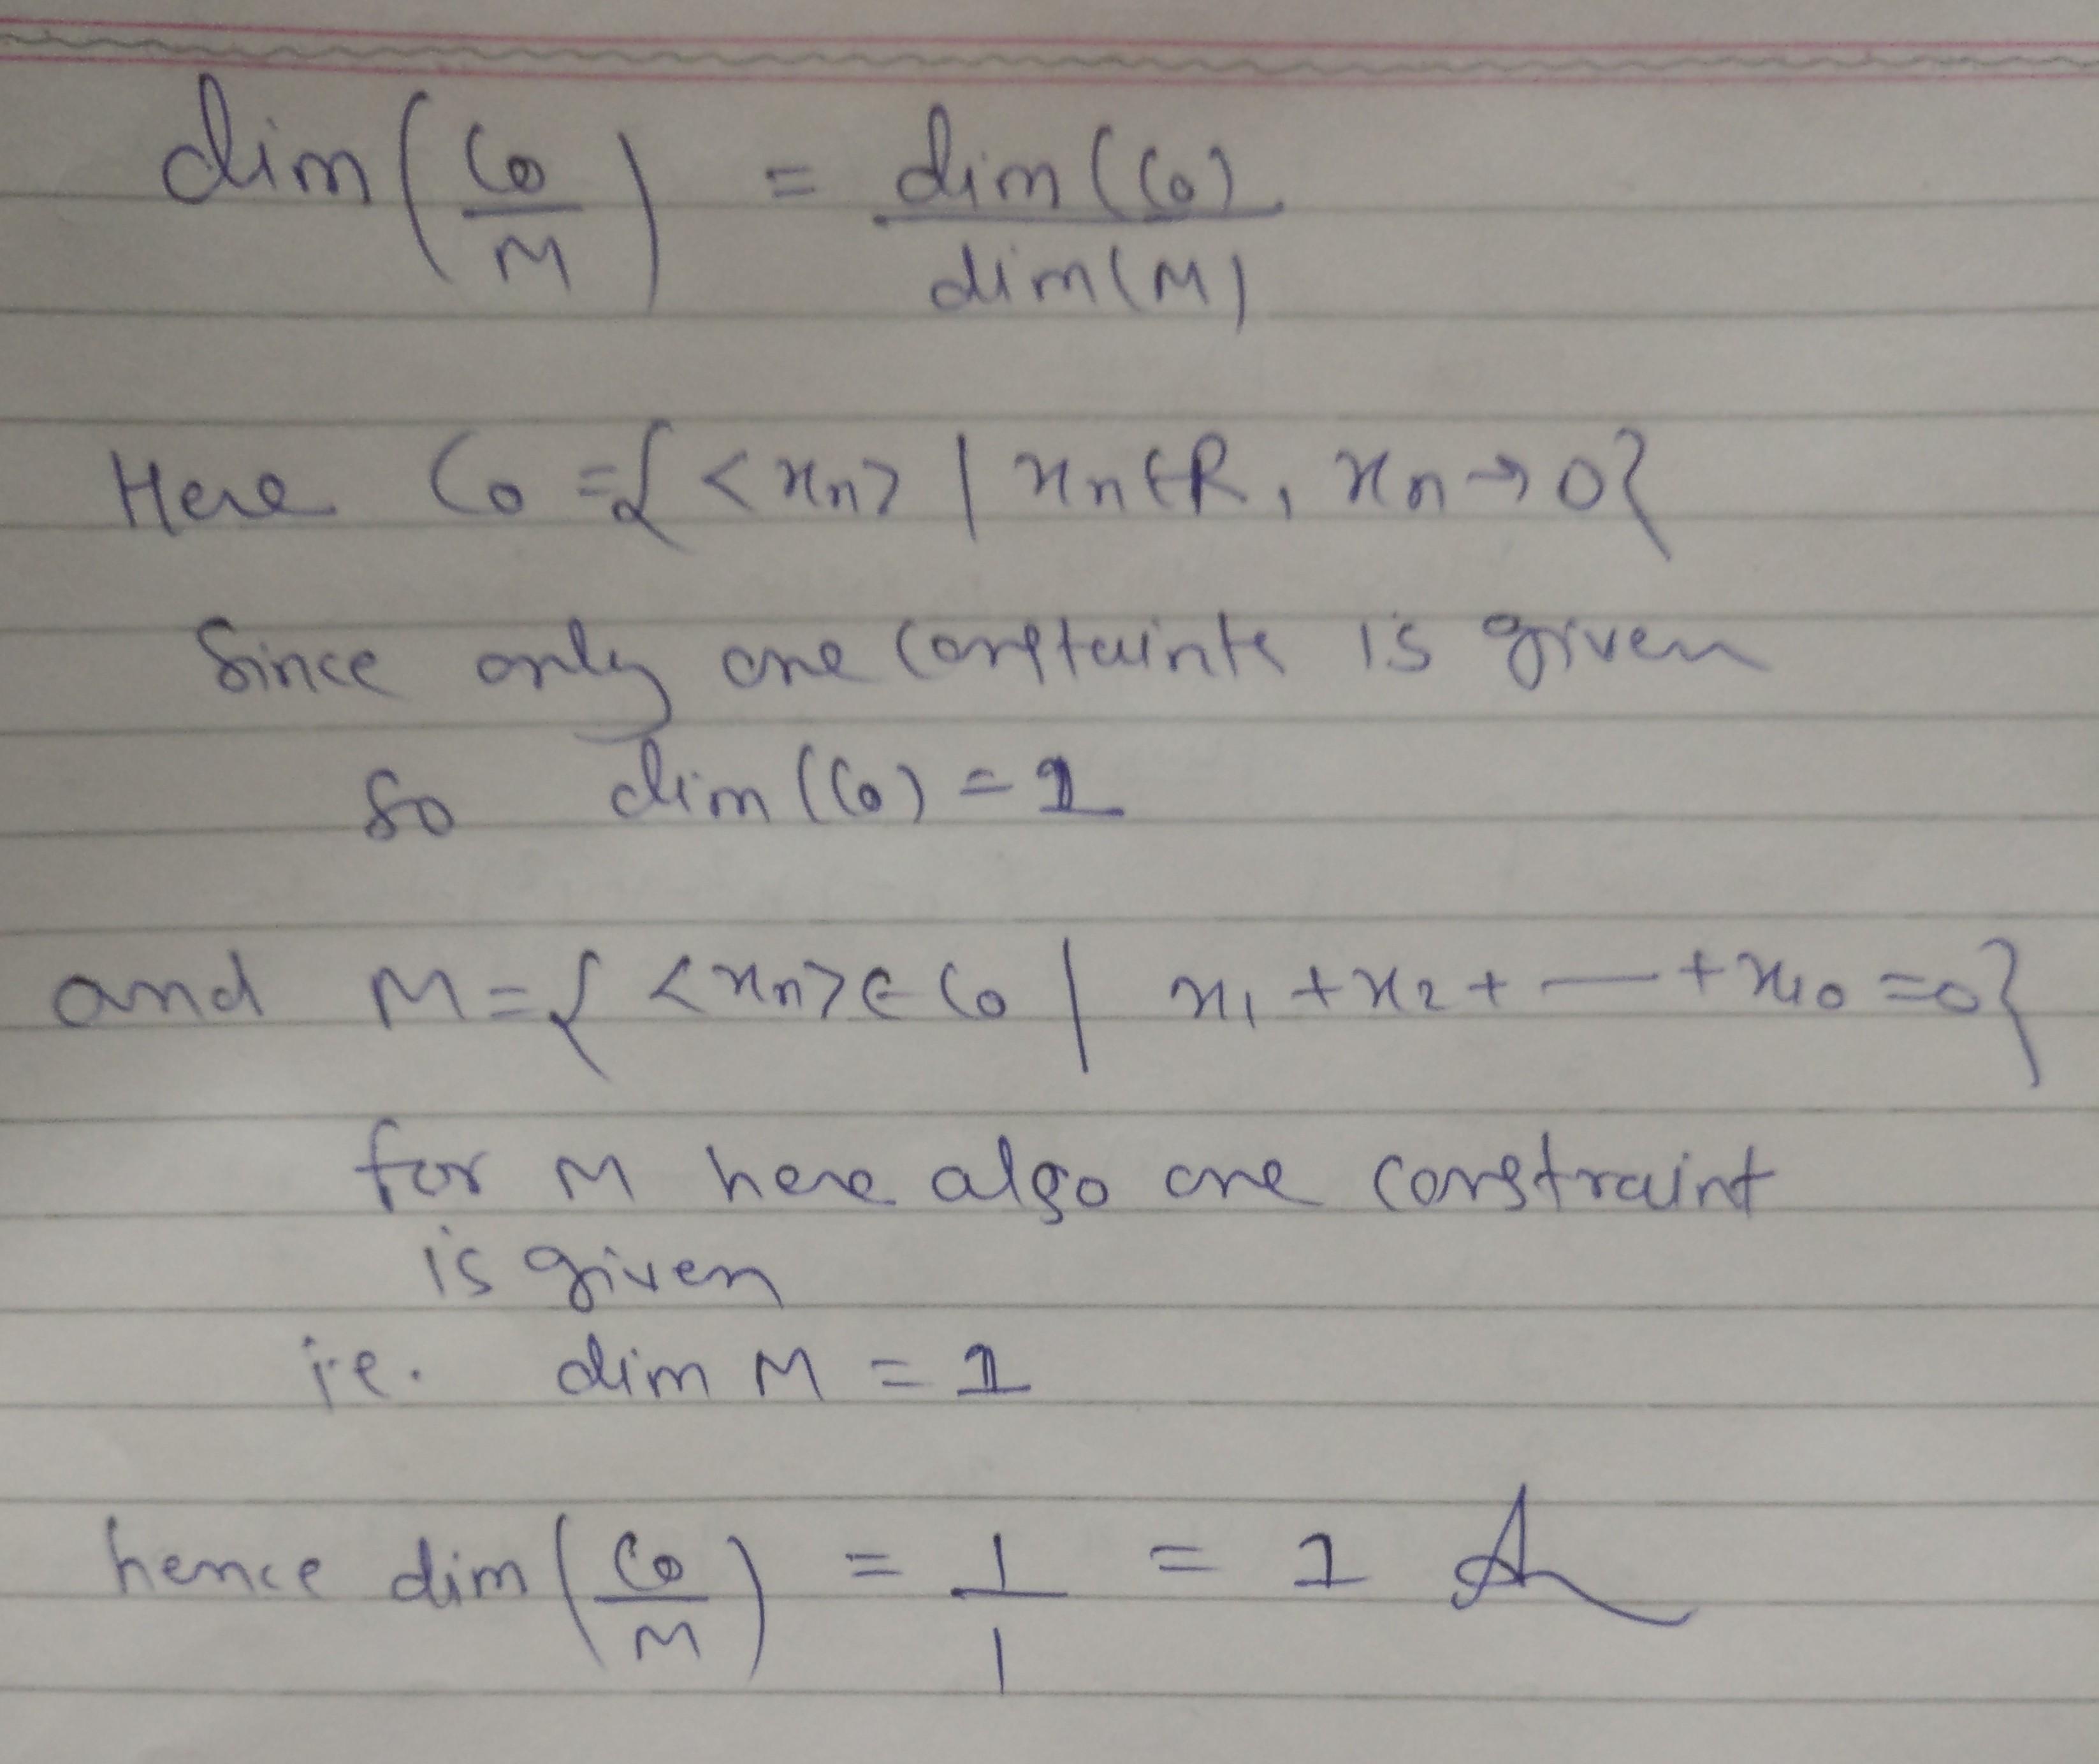 dim (C₀/M) = dim(C₀)/dim(M)
Here C₀ = {<xn> | xn ∈ R, xn → 0}
Since only one constainte is given
So dim(C₀) = 1
and M = {<xn> ∈ C₀ | x₁ + x₂ + — + x₁₀ = 0}
for M here also one constraint
is given
i.e. dim M = 1
hence dim (C₀/M) = 1/1 = 1 A